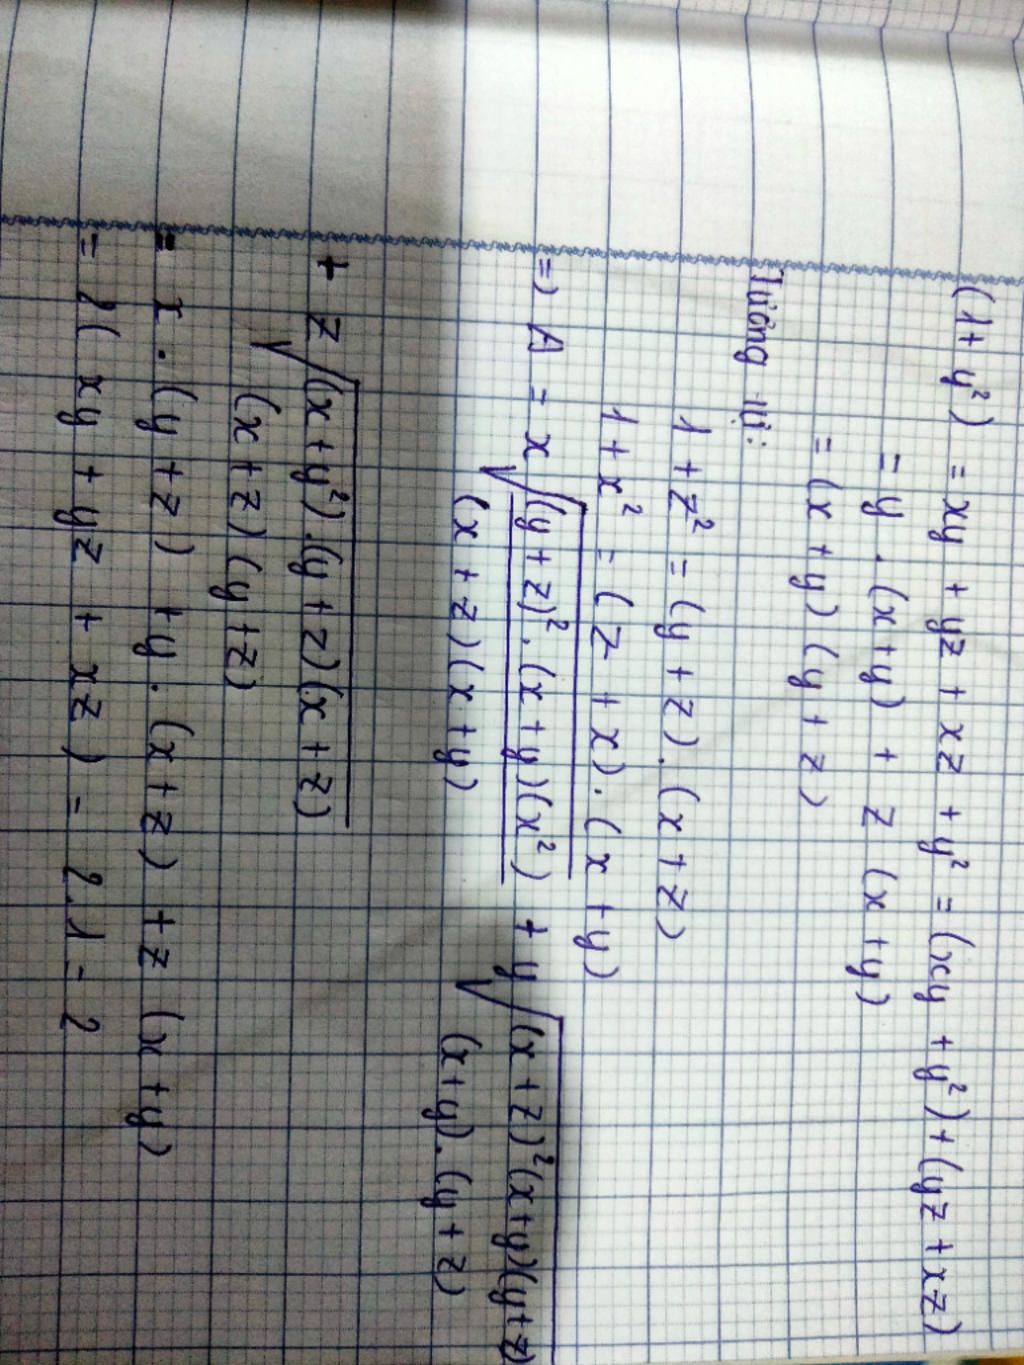 (1 + y²) = xy + yz + xz + y² = (xy + y²) + (yz + xz)
= y . (x + y) + z (x + y)
= (x + y) (y + z)
Tương tự:
1 + z² = (y + z) . (x + z)
1 + x² = (z + x) . (x + y)
=) A = x √(y + z)² . (x + y)(x²) + y √(x + z)² (x + y)(y + z)
(x + z) (x + y) (x + y) . (y + z)
+ z √(x + y²) . (y + z)(x + z)
(x + z) (y + z)
= x . (y + z) + y . (x + z) + z (x + y)
= 2 ( xy + yz + xz ) = 2.1 = 2